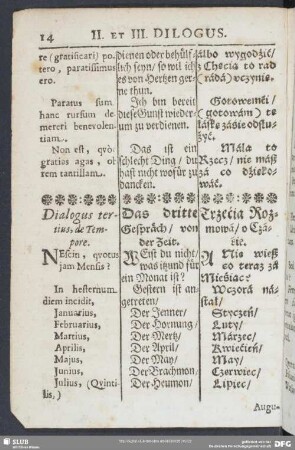 14 II. ET III. DILOGUS.
re (gratificari) po-
tero, paratissimus
ero.
Paratus sum
hanc rursum de
mereri benevolen-
tiam.
Non est, qvod
gratias agas, ob
rem tantillam.
Dialogus ter-
tius, de Tem-
pore.
NEscin, qvotus
jam Mensis?
In hesternum
diem incidit,
Januarius,
Februarius,
Martius,
Aprilis,
Majus,
Junius,
Julius, (Qvinti-
lis,)
dienen oder behülf-
lich seyn/ so wil ich
es von Hertzen ger-
ne thun.
Ich bin bereit
diese Gunst wieder-
um zu verdienen.
Das ist ein
schlecht Ding/ du
hast nicht wofür zu
dancken.
Das dritte
Gespräch/ von
der Zeit.
WEist du nicht/
was itzund für
ein Monat ist?
Gestern ist an-
getreten/
Der Jenner/
Der Hornung/
Der Mertz/
Der April/
Der May/
Der Brachmon/
Der Heumon/
álbo wygodźić/
z Checia to rad
(rádá) uczynie.
Gotowemći/
(gotowám) te
łáskę zásie odsłu-
żyć.
Máła to
Rzecz/ nie mász
zá co dźięko-
wáć.
Trzećia Roz-
mowá/ o Czá-
śie.
A Nie wiesz
co teraz zá
Mieśiąc?
Wczorá ná-
stał/
Styczeń/
Luty/
Márzec/
Kwiećień/
May/
Czerwiec/
Lipiec/
Augu-
SLUB
DFG